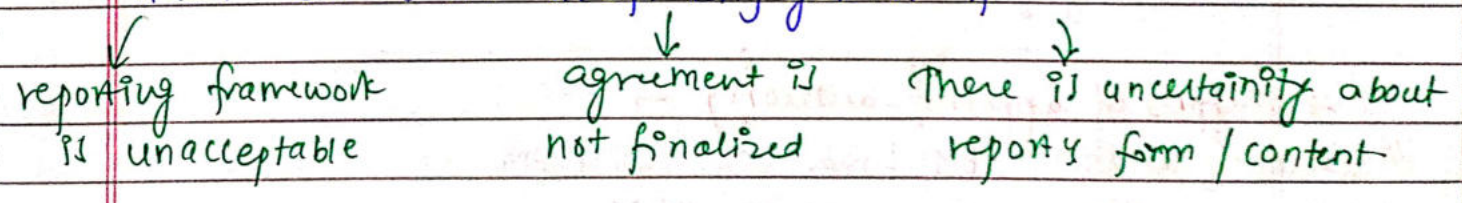 reporting framework
is unacceptable
agreement is
not finalized
There is uncertainity about
report's form / content